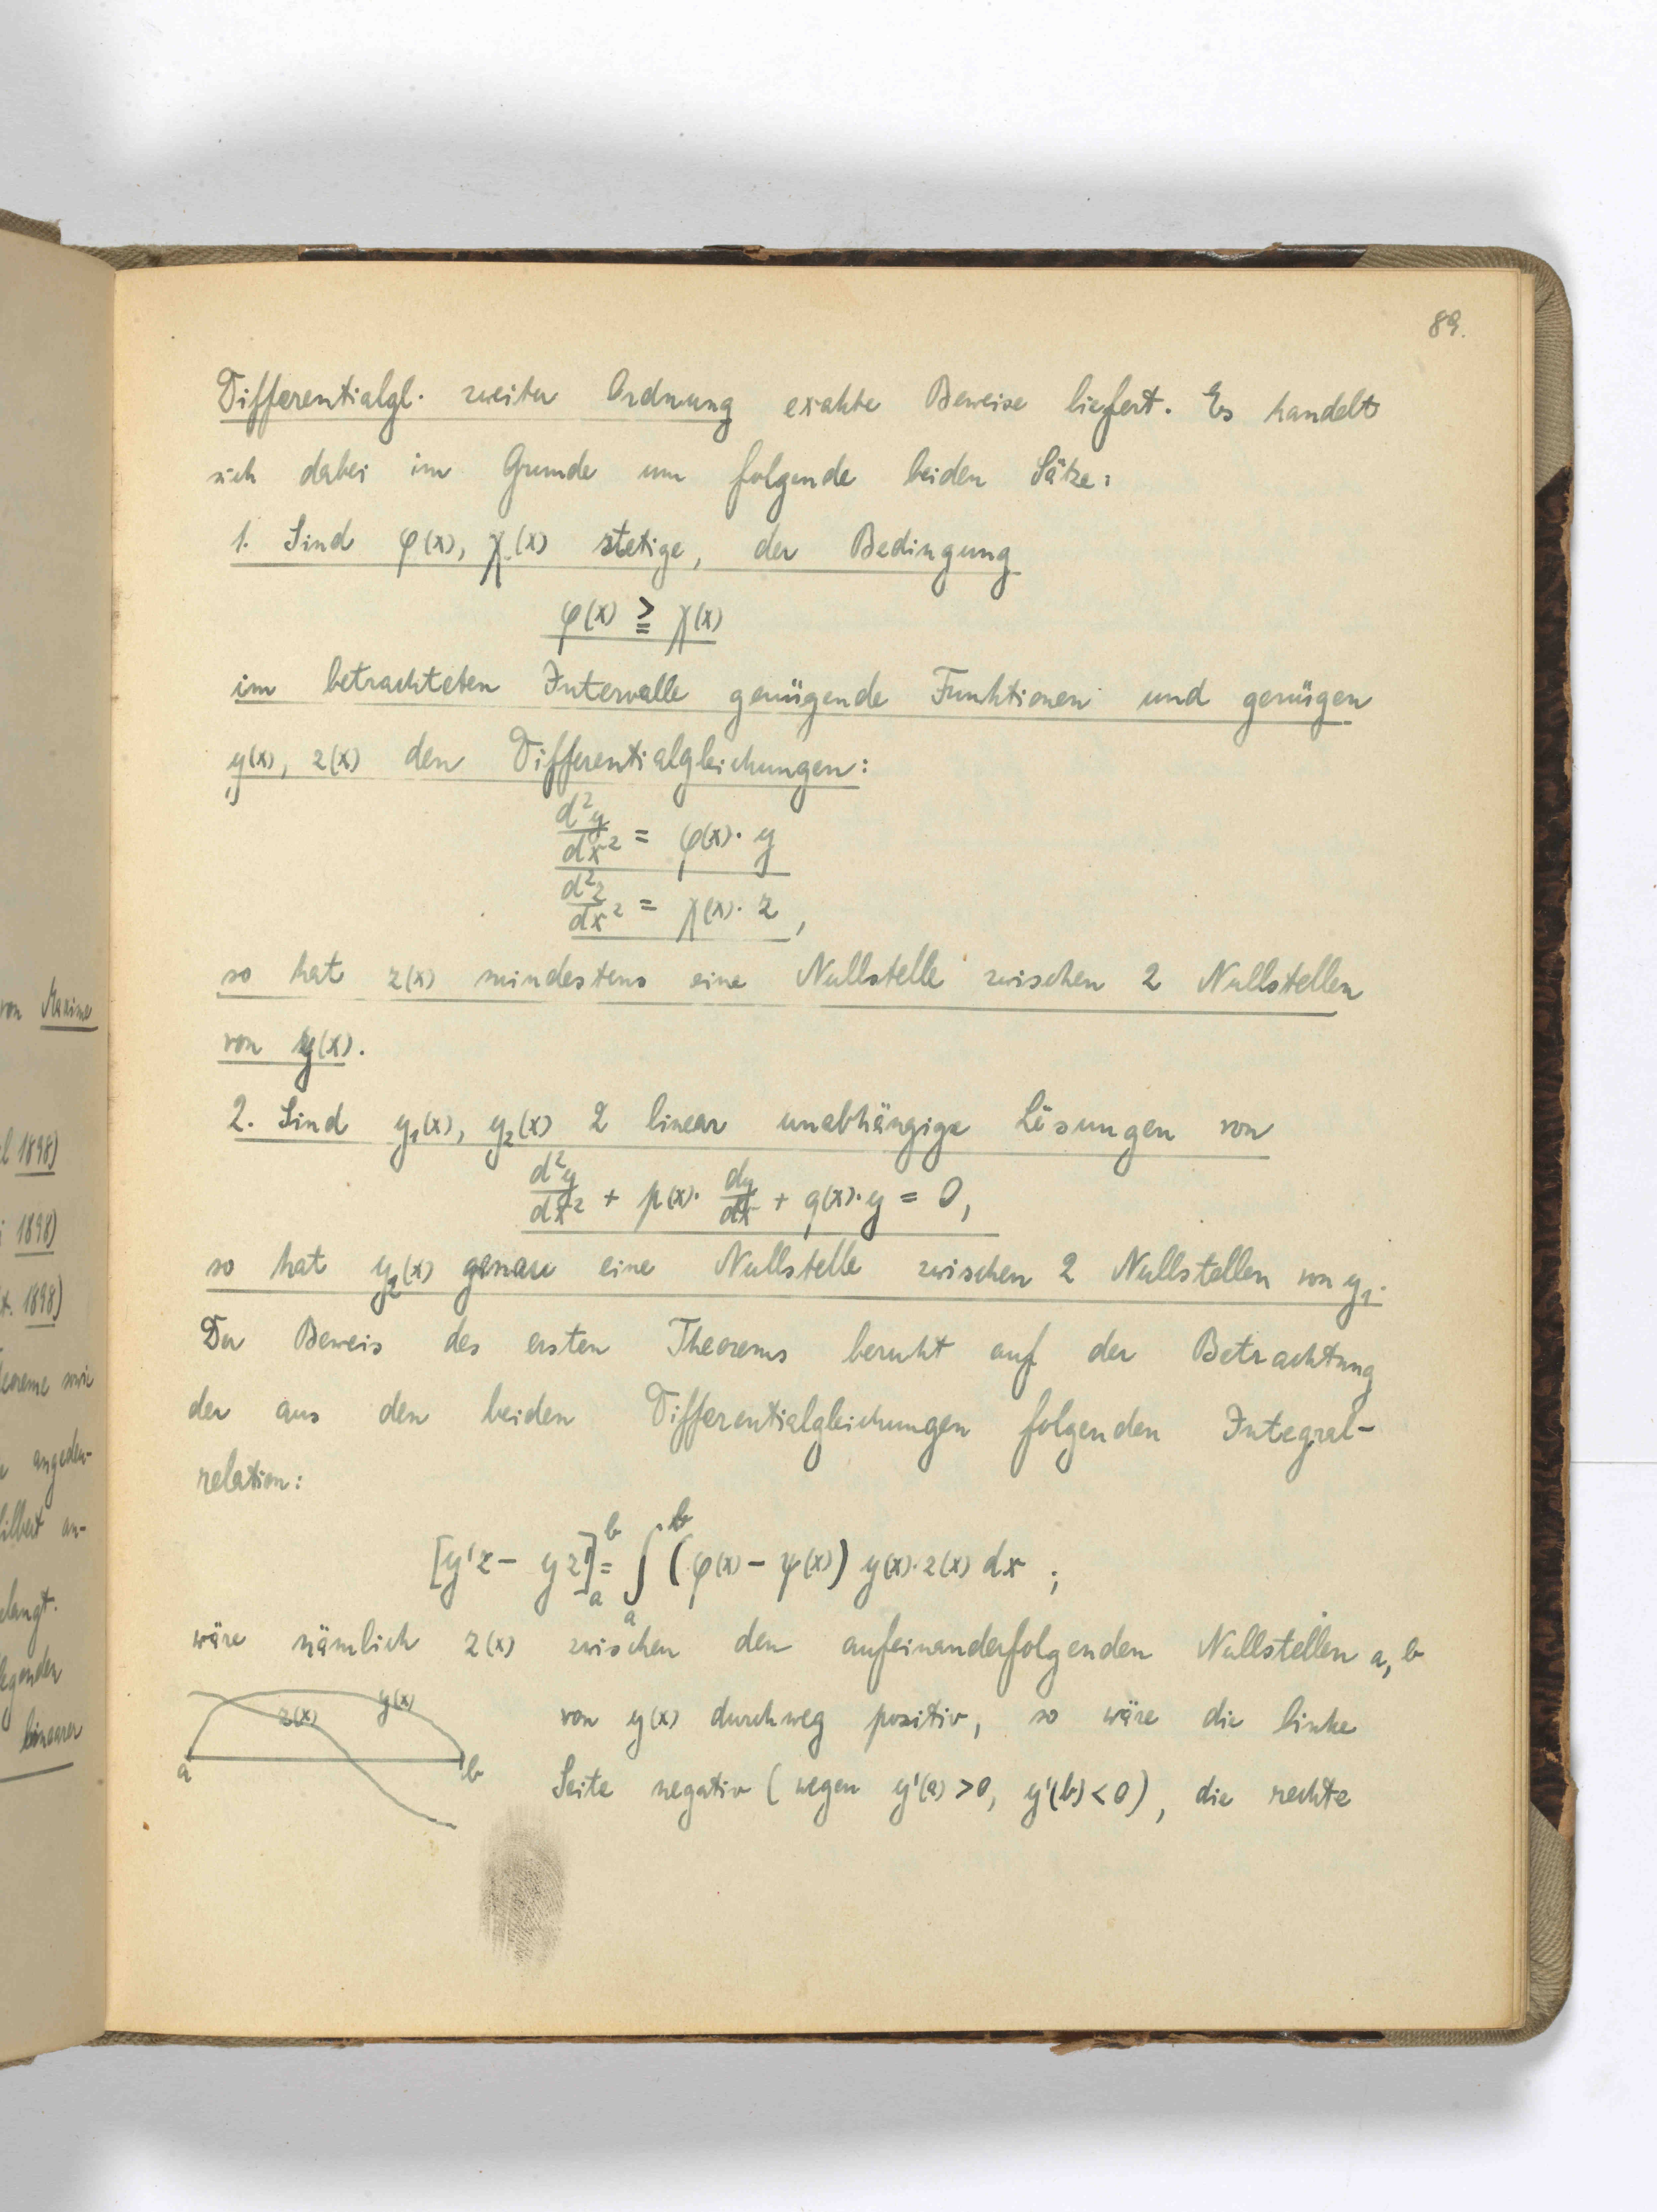 89.
Differentialgl. zweiter Ordnung exakte Beweise liefert. Es handelt
sich dabei im Grunde um folgende beiden Sätze:
1. Sind φ(x), χ(x) stetige, der Bedingung
φ(x) ≧ χ(x)
im betrachteten Intervalle genügende Funktionen und genügen
y(x), z(x) den Differentialgleichungen:
d²y/dx² = φ(x)· y
d²z/dx² = χ(x)· z,
so hat z(x) mindestens eine Nullstelle zwischen 2 Nullstellen
von y(x).
2. Sind y₁(x), y₂(x) 2 linear unabhängige Lösungen von
d²y/dx² + p(x)· dy/dx + q(x)· y = 0,
so hat y₂(x) genau eine Nullstelle zwischen 2 Nullstellen von y₁.
Der Beweis des ersten Theorems beruht auf der Betrachtung
der aus den beiden Differentialgleichungen folgenden Integral-
relation:
[y'z - yz']ₐᵇ = ∫ₐᵇ (φ(x) - ψ(x)) y(x)· z(x) dx ;
wäre nämlich z(x) zwischen den aufeinanderfolgenden Nullstellen a, b
von y(x) durchweg positiv, so wäre die linke
Seite negativ (wegen y'(a) > 0, y'(b) < 0), die rechte
z(x) y(x)
a b
von Maxime
1898)
1898)
1898)
angedeu-
an-
linearer